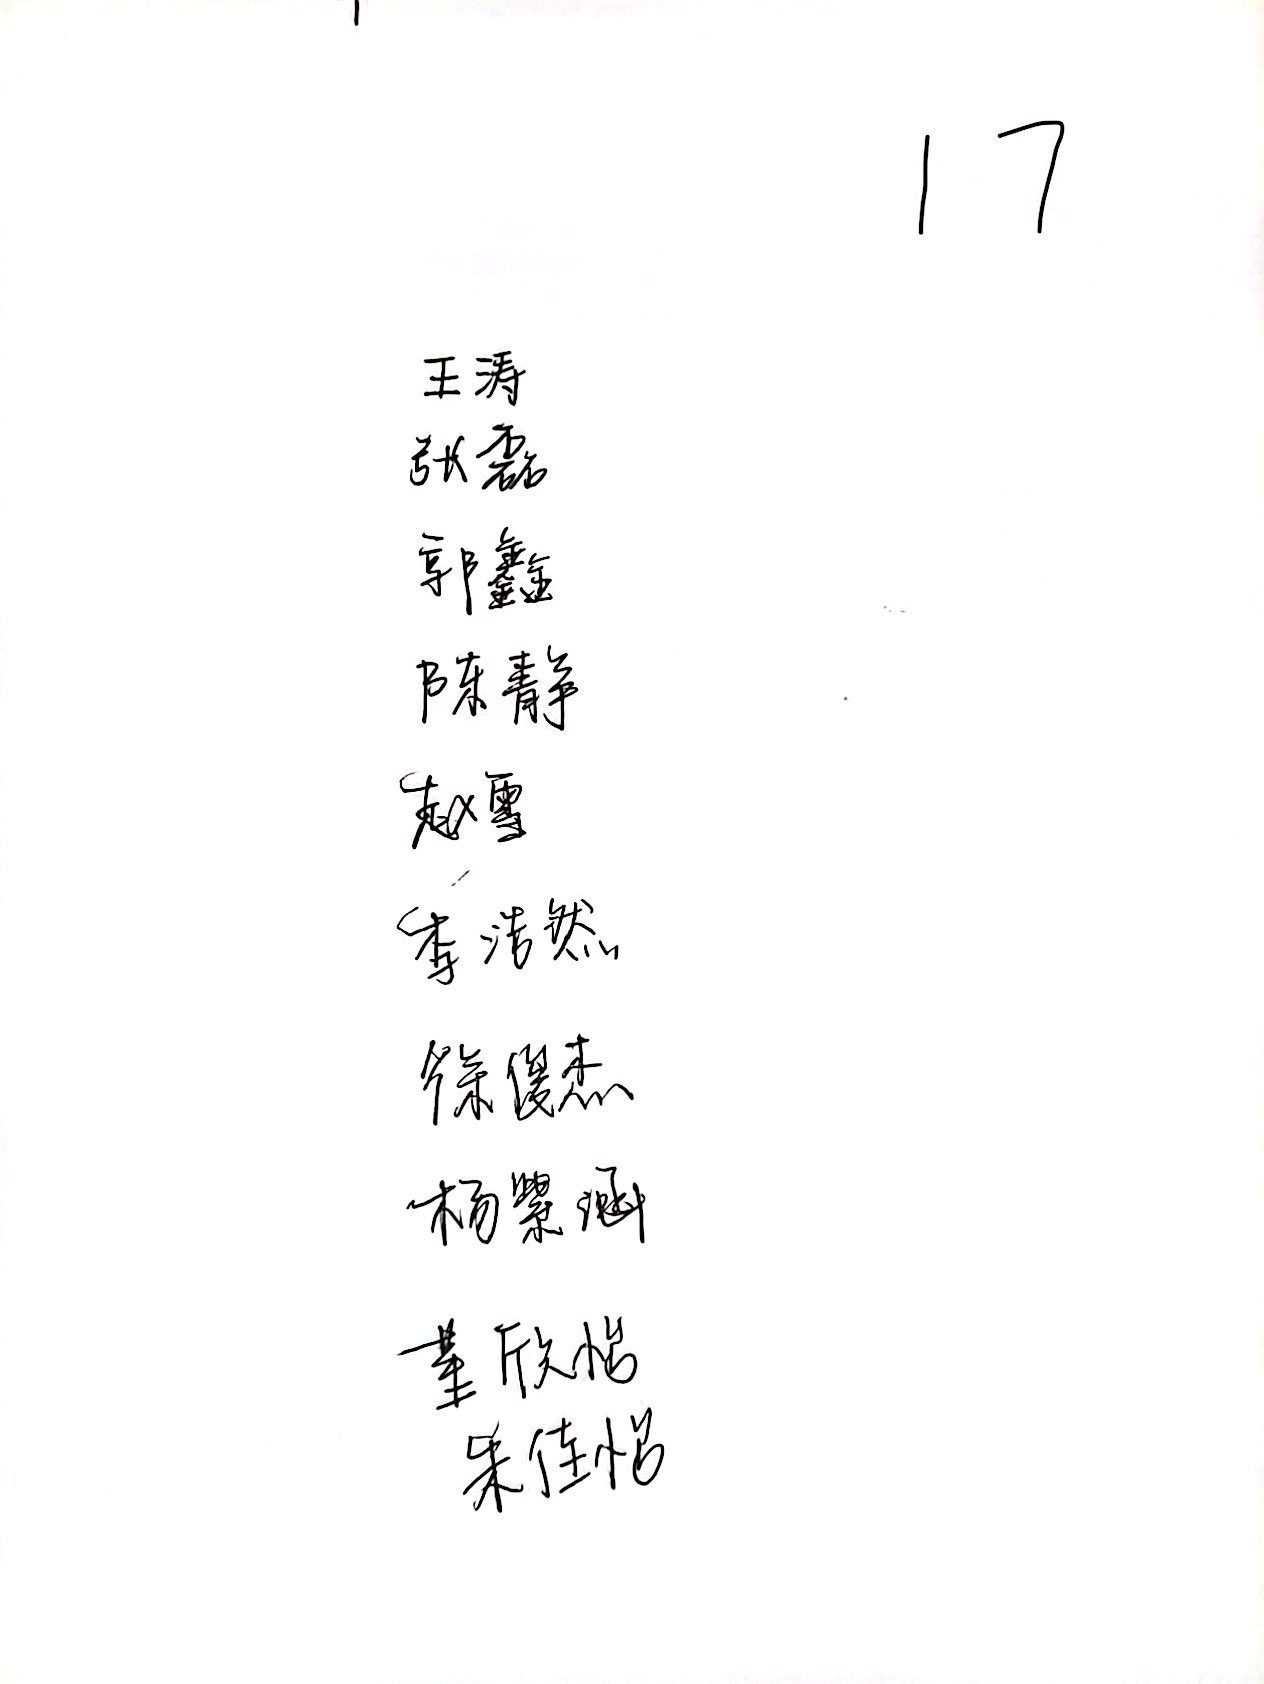 17
王涛
张磊
郭鑫
陈静
赵雪
李浩然
徐俊杰
杨紫涵
董欣怡
朱佳怡